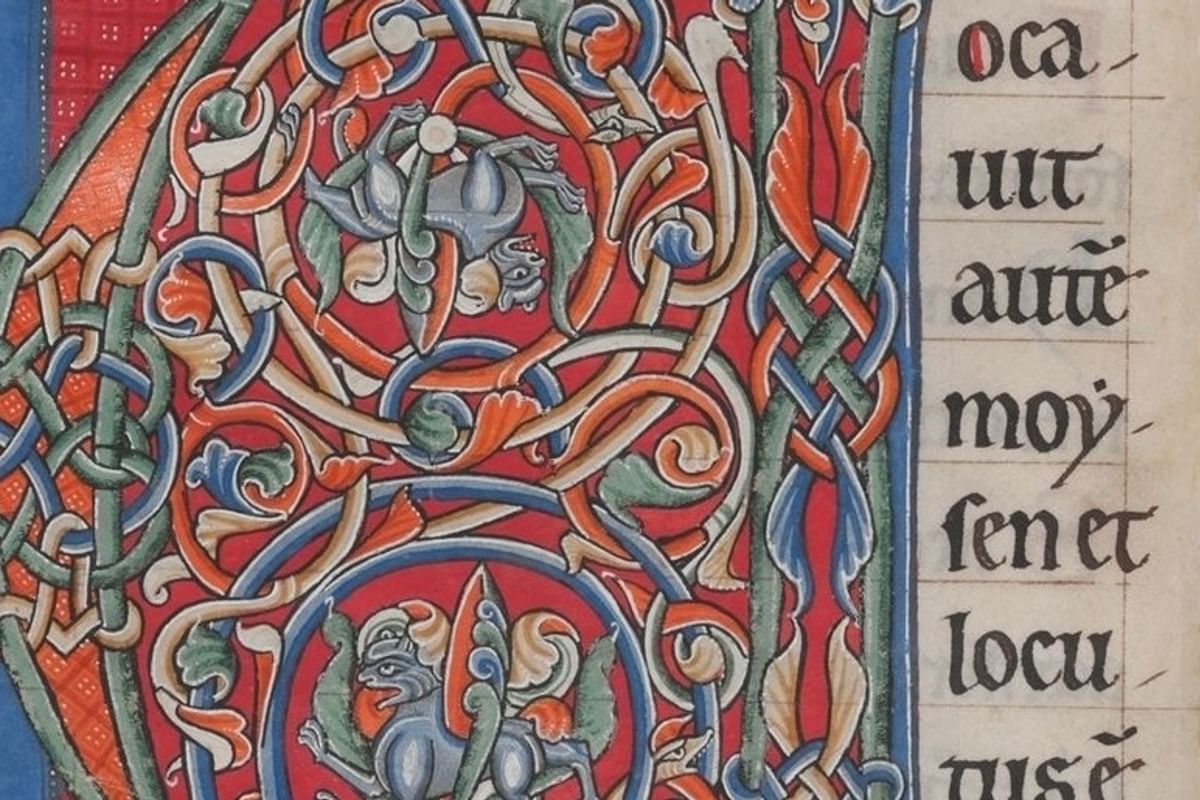 oca
uit
autē
moẏ
ſen et
locu
tus ē